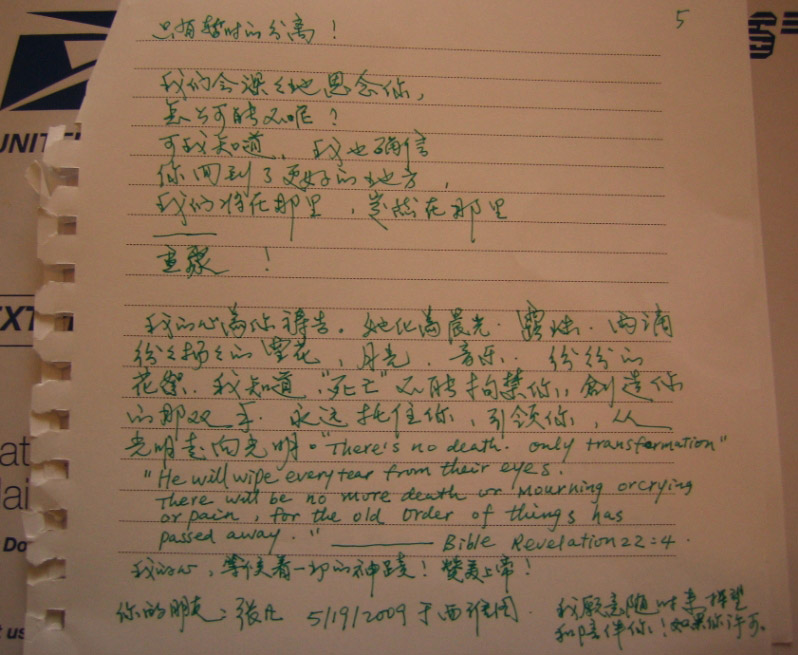 5
只有暂时的分离！
我们会深深地思念你，
怎么可能不呢？
可我知道，我也确信
你回到了更好的地方，
我们将在那里，
在那里
重聚！
我的心为你祷告。她化为晨光、露珠、雨滴
纷纷扬扬的雪花，月光、音乐、纷纷的
花絮、我知道，“死亡”不能拘禁你，創造你
的那双手、永远托住你，引领你，从
光明走向光明。"There's no death. only transformation"
"He will wipe every tear from their eyes.
There will be no more death or Mourning or crying
or pain, for the old order of things has
passed away." ——— Bible Revelation 22:4.
我的心，等候着一切的神蹟！赞美上帝！
你的朋友：张 5/19/2009 于西雅图
我愿意随时来探望
和陪伴你！如果你许可。
UNITE
EXT
at
lai
Do
t us